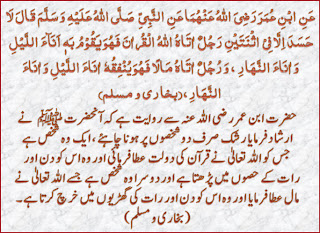 عَنِ ابْنِ عُمَرَ رَضِیَ اللهُ عَنْهُمَا عَنِ النَّبِیِّ صَلَّی اللهُ عَلَیْهِ وَسَلَّمَ قَالَ لَا
حَسَدَ اِلَّا فِیْ اثْنَتَیْنِ رَجُلٌ اٰتَاهُ اللهُ الْقُرْاٰنَ فَهُوَ یَقُوْمُ بِهٖ اٰنَآءَ اللَّیْلِ
وَ اٰنَاءَ النَّهَارِ ، وَ رَجُلٌ اٰتَاهُ مَالًا فَهُوَ یُنْفِقُهٗ اٰنَاءَ اللَّیْلِ وَ اٰنَاءَ
النَّهَارِ ، (بخاری و مسلم)
حضرت ابن عمر رضی اللہ عنہ سے روایت ہے کہ آنحضرت ﷺ نے
ارشاد فرمایا رشک صرف دو شخصوں پر ہونا چاہئے ، ایک وہ شخص ہے
جس کو اللہ تعالیٰ نے قرآن کی دولت عطا فرمائی اور وہ اس کو دن اور
رات کے حصوں میں پڑھتا ہے اور دوسرا وہ شخص ہے جسے اللہ تعالیٰ نے
مال عطا فرمایا اور وہ اس کو دن اور رات کی گھڑیوں میں خرچ کرتا ہے ۔
(بخاری و مسلم)